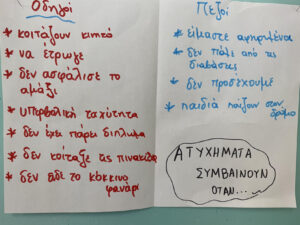 Οδηγοί
* κοιτάζουν κινητό
* να έτρωγε
* δεν ασφάλισε το
αμάξι
* υπερβολική ταχύτητα
* δεν έχει πάρει δίπλωμα
* δεν κοίταξε τις πινακίδες
* δεν είδε το κόκκινο
φανάρι
Πεζοί
* είμαστε αφηρημένοι
* δεν πάμε από τις
διαβάσεις
* δεν προσέχουμε
* παιδιά παίζουν στον
δρόμο
ΑΤΥΧΗΜΑΤΑ
ΣΥΜΒΑΙΝΟΥΝ
ΟΤΑΝ...